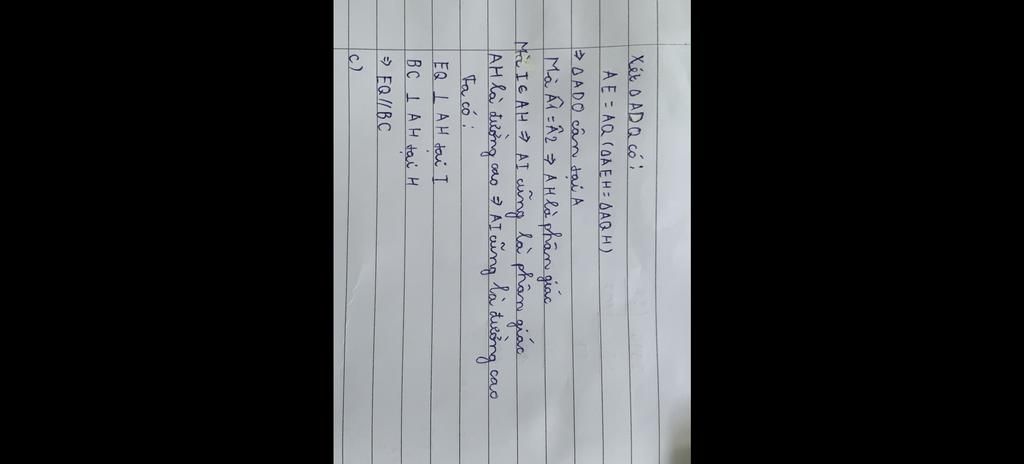 Xét ΔADQ có:
AE = AQ (ΔAEH = ΔAQH)
⇒ ΔADO cân tại A
Mà Â1 = Â2 ⇒ AH là phân giác
Mà I ∈ AH ⇒ AI cũng là phân giác
AH là đường cao ⇒ AI cũng là đường cao
Ta có:
EQ ⊥ AH tại I
BC ⊥ AH tại H
⇒ EQ // BC
c)